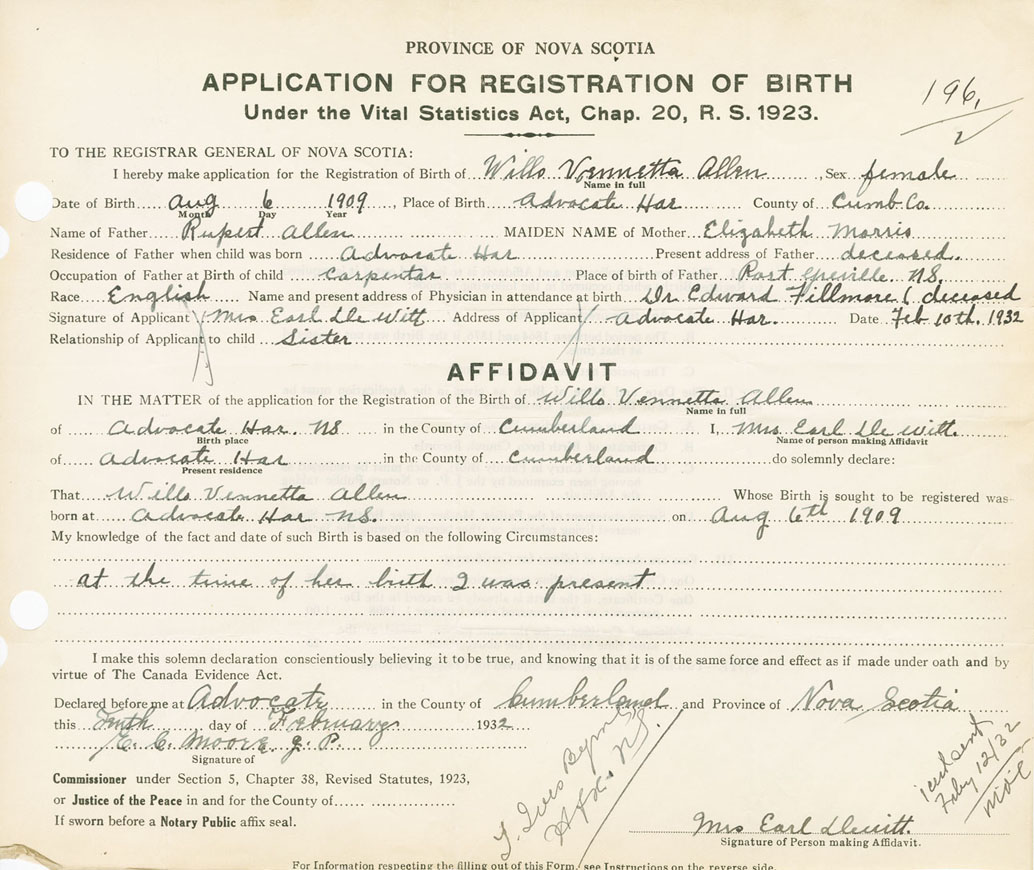 PROVINCE OF NOVA SCOTIA
APPLICATION FOR REGISTRATION OF BIRTH
Under the Vital Statistics Act, Chap. 20, R. S. 1923.
196,
2
TO THE REGISTRAR GENERAL OF NOVA SCOTIA:
I hereby make application for the Registration of Birth of Willo Vennetta Allen, Sex female
Name in full
Date of Birth Aug 6 1909, Place of Birth Advocate Har County of Cumb Co.
Month Day Year
Name of Father Rupert Allen MAIDEN NAME of Mother Elizabeth Morris
Residence of Father when child was born Advocate Har Present address of Father deceased.
Occupation of Father at Birth of child Carpenter Place of birth of Father Port Greville. NS.
Race English Name and present address of Physician in attendance at birth Dr Edward Fillmore (deceased
Signature of Applicant Mrs Earl De Witt Address of Applicant Advocate Har. Date Feb 10th. 1932
Relationship of Applicant to child Sister
AFFIDAVIT
IN THE MATTER of the application for the Registration of the Birth of Willo Vennetta Allen
Name in full
of Advocate Har. NS in the County of Cumberland I, Mrs. Earl De Witt.
Birth place Name of person making Affidavit
of Advocate Har in the County of Cumberland do solemnly declare:
Present residence
That Willo Vennetta Allen Whose Birth is sought to be registered was
born at Advocate Har NS. on Aug 6th 1909
My knowledge of the fact and date of such Birth is based on the following Circumstances:
at the time of her birth I was present
I make this solemn declaration conscientiously believing it to be true, and knowing that it is of the same force and effect as if made under oath and by
virtue of The Canada Evidence Act.
Declared before me at Advocate in the County of Cumberland and Province of Nova Scotia
this Tenth day of February 1932
E. C. Moore J. P.
Signature of
Commissioner under Section 5, Chapter 38, Revised Statutes, 1923,
or Justice of the Peace in and for the County of
If sworn before a Notary Public affix seal.
Hfx. NS.
1 cert sent
Feby 12/32
Mrs Earl Dewitt.
Signature of Person making Affidavit.
For Information respecting the filling out of this Form, see Instructions on the reverse side.